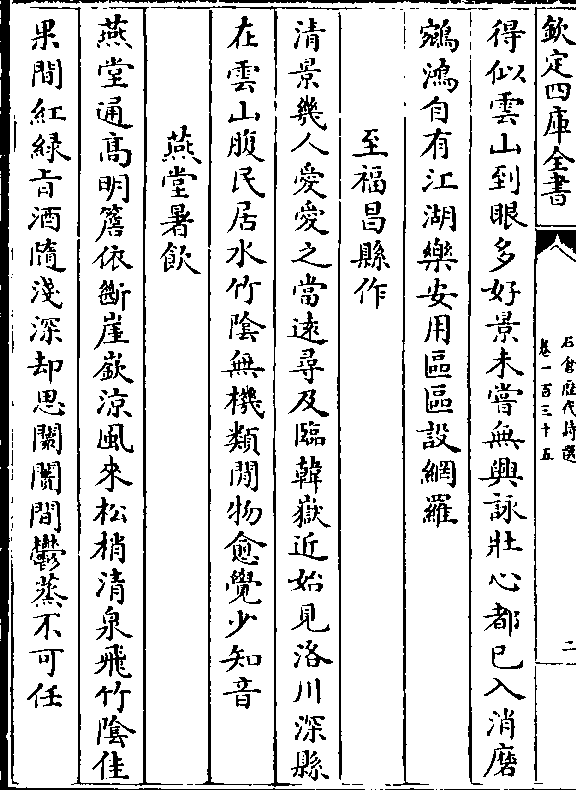 欽定四庫全書
石倉歷代詩選
卷一百三十五
二
得似雲山到眼多好景未嘗無興詠壯心都已入消磨
鵷鴻自有江湖樂安用區區設網羅
至福昌縣作
清景幾人愛愛之當遠尋及臨韓嶽近始見洛川深縣
在雲山腹民居水竹陰無機類閒物愈覺少知音
燕堂暑飲
燕堂通髙明簷依斷崖嶔涼風來松梢清泉飛竹陰佳
果間紅緑㫖酒隨淺深却思闤闠間鬱蒸不可任